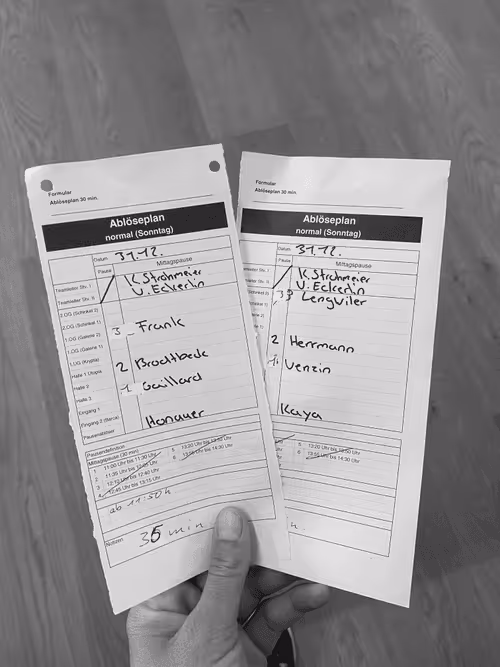 Formular
Ablöseplan 30 min.
Ablöseplan
normal (Sonntag)
Datum 31.12.
Pause Mittagspause
Teamleiter Stv. 1 K. Strohmeier
Teamleiter Stv. 3 U. Eckerlin
2.OG (Schinkel 2)
2.OG (Schinkel 1)
1.OG (Galerie 2) 3 Frank
1.OG (Galerie 1)
1.UG (Krypta)
Halle 1 Utopia 2 Brodtbeck
Halle 2 1 Gaillard
Halle 3
Eingang 1
Eingang 2 (Bernis) Honauer
Pausenablöser
Pausendefinition
Mittagspause (30 min)
1 11:00 Uhr bis 11:30 Uhr
2 11:35 Uhr bis 12:05 Uhr
3 12:10 Uhr bis 12:40 Uhr
4 12:45 Uhr bis 13:15 Uhr
5 13:20 Uhr bis 13:50 Uhr
6 13:55 Uhr bis 14:30 Uhr
ab 11:50h
Notizen
35 min
Formular
Ablöseplan 30 min.
Ablöseplan
normal (Sonntag)
Datum 31.12.
Pause Mittagspause
K. Strohmeier
U. Eckerlin
3 Lengviler
2 Herrmann
1 Venzin
Kaya
5 13:20 Uhr bis 13:50 Uhr
6 13:55 Uhr bis 14:30 Uhr
n.